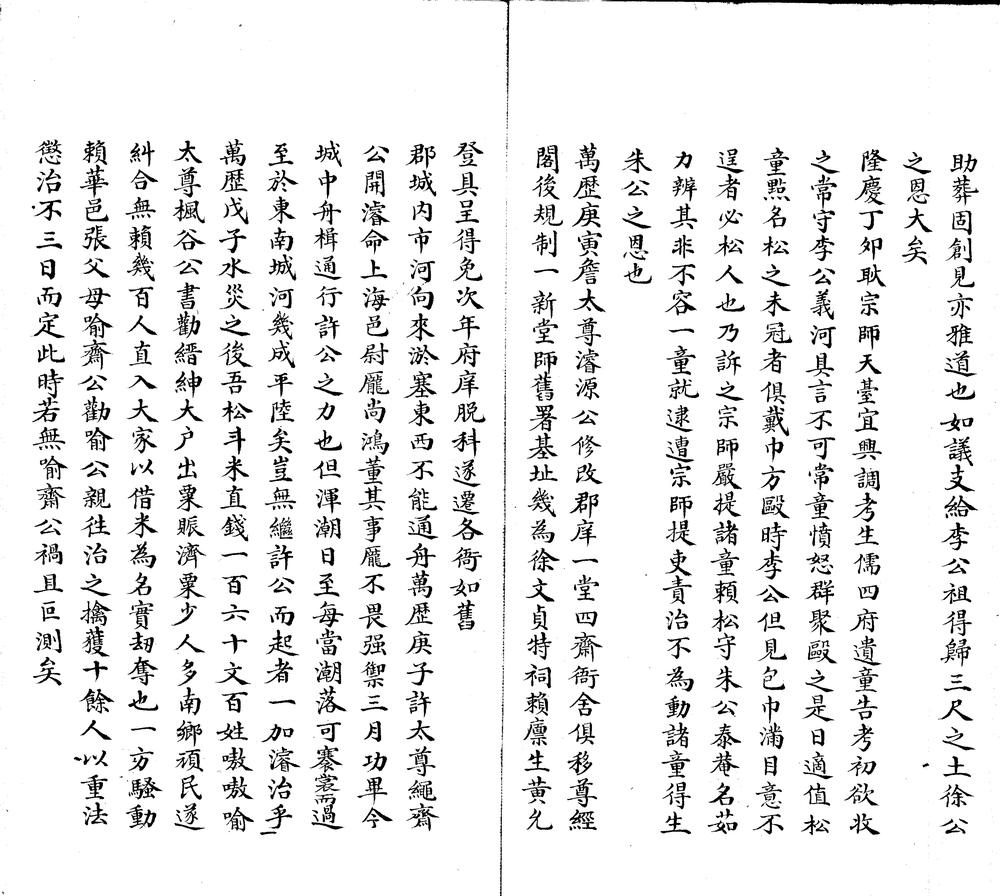 助葬固創見亦雅道也如議支給李公祖得歸三尺之土徐公
之恩大矣
隆慶丁卯耿宗師天臺宜興調考生儒四府遺童告考初欲收
之常守李公義河具言不可常童憤怒群聚毆之是日適值松
童點名松之未冠者俱戴巾方毆時李公但見包巾滿目意不
逞者必松人也乃訴之宗師嚴提諸童賴松守朱公泰菴名茹
力辨其非不容一童就逮遭宗師提吏責治不為動諸童得生
朱公之恩也
萬歷庚寅詹太尊濬源公修改郡庠一堂四齋衙舍俱移尊經
閣後規制一新堂師舊署基址幾為徐文貞特祠賴廪生黃允
登具呈得免次年府庠脱科遂遷各衙如舊
郡城内市河向來淤塞東西不能通舟萬歷庚子許太尊繩齋
公開濬命上海邑尉龎尚鴻董其事龎不畏强禦三月功畢今
城中舟楫通行許公之力也但渾潮日至每當潮落可褰裳而過
至於東南城河幾成平陸矣豈無繼許公而起者一加濬治乎
萬歷戊子水災之後吾松斗米直錢一百六十文百姓嗷嗷喻
太尊楓谷公書勸縉紳大户出粟賑濟粟少人多南鄉頑民遂
糾合無賴幾百人直入大家以借米為名實刼奪也一方騷動
賴華邑張父母喻齋公勸喻公親徃治之擒獲十餘人以重法
懲治不三日而定此時若無喻齋公禍且叵測矣